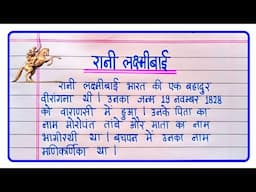 रानी लक्ष्मीबाई
रानी लक्ष्मीबाई भारत की एक बहादुर
वीरांगना थी। उनका जन्म 19 नवम्बर 1828
को वाराणसी में हुआ। उनके पिता का
नाम मोरोपंत तांबे और माता का नाम
भागीरथी था। बचपन में उनका नाम
मणिकर्णिका था।